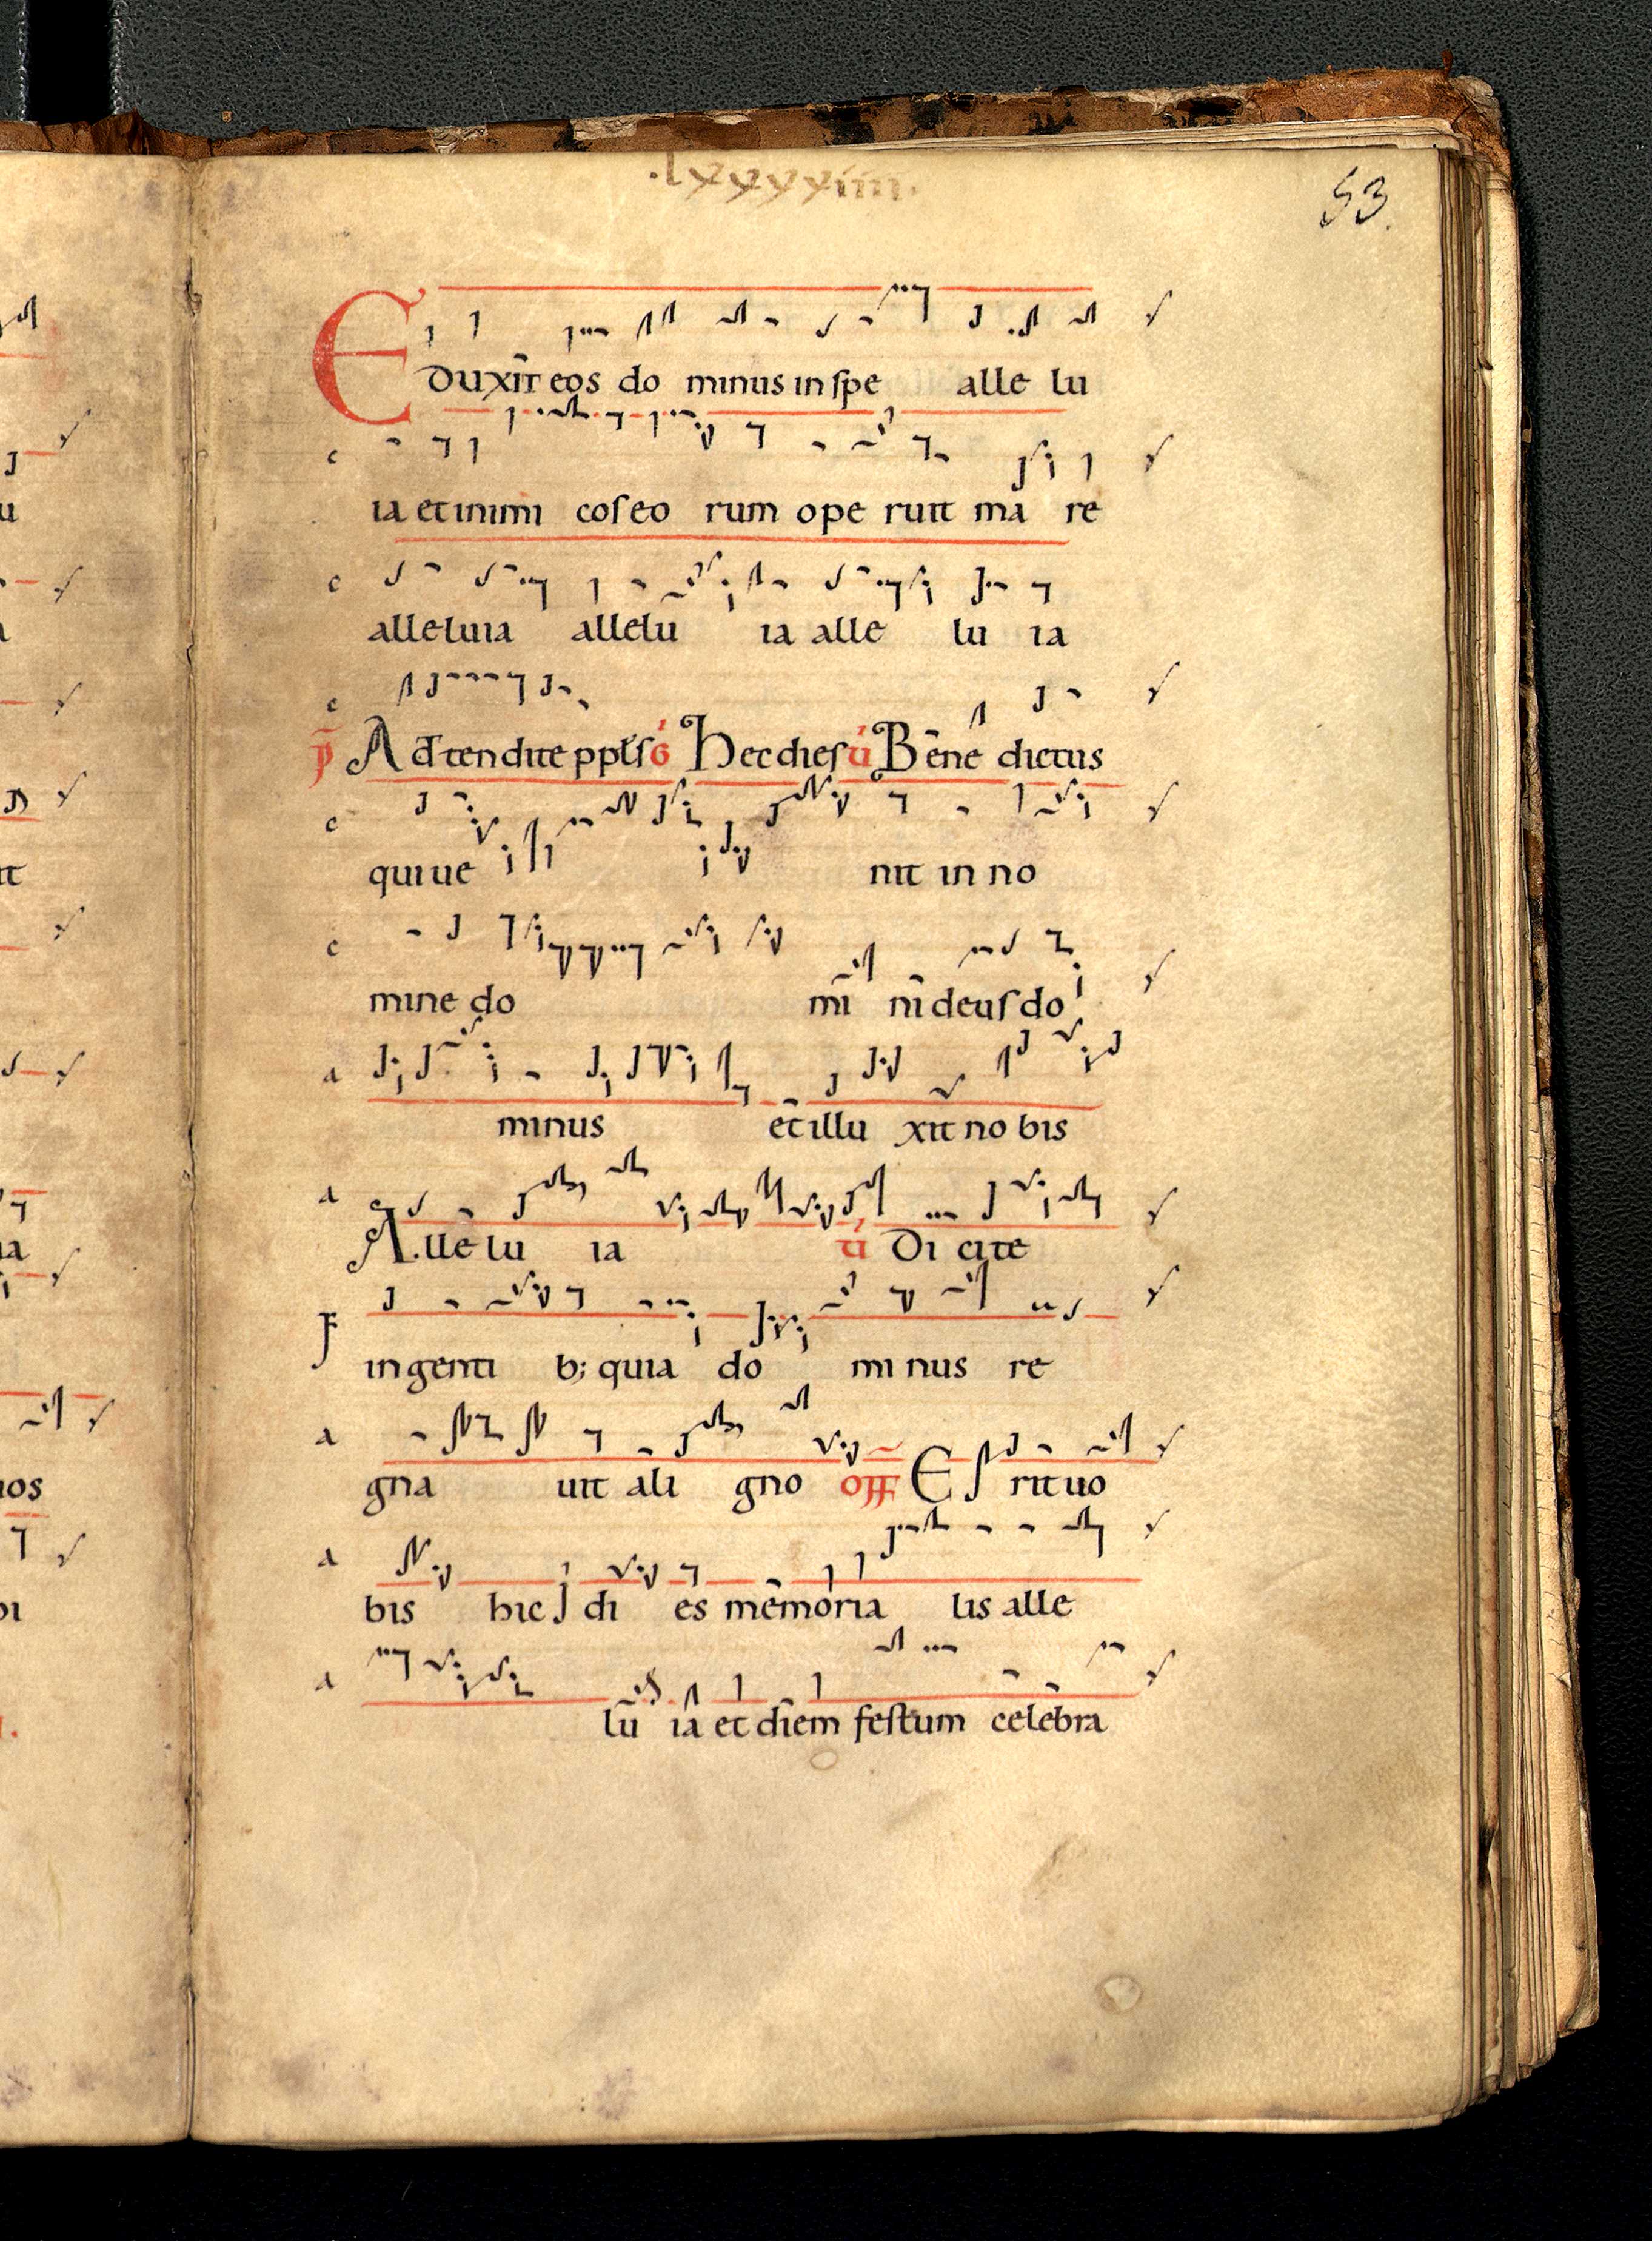 .lxxxxiiii.
53.
Eduxit eos do minus in spe alle lu
ia et inimi cos eo rum ope ruit ma re
alleluia allelu ia alle lu ia
Ad tendite ppls G Hec dies v Bene dictus
qui ue nit in no
mine do mi ni deus do
minus et illu xit no bis
Alle lu ia v Di cite
in genti b; quia do mi nus re
gna uit a li gno off E rit uo
bis hic di es memoria lis alle
lu ia et diem festum celebra